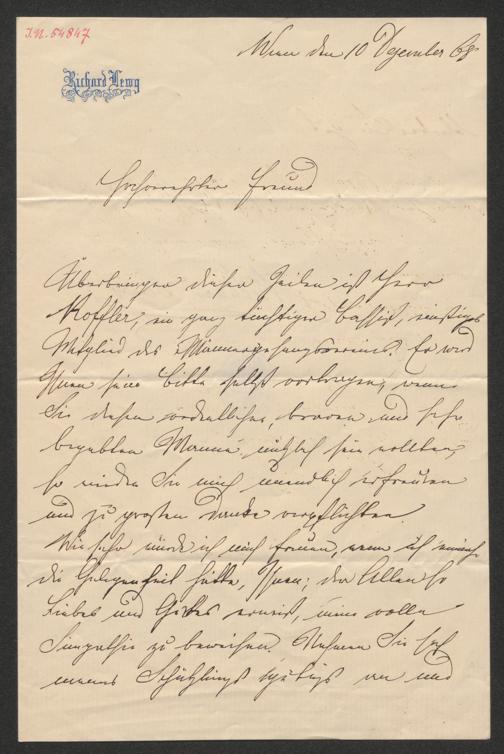 I.N. 54847
Wien den 10 Dezember 68
Richard Lewy
Hochverehrter Freund
Überbringer dieser Zeilen ist Herr
Koffler, ein ganz tüchtiger Bassist, einstiges
Mitglied des Männergesangsvereins. Er wird
Ihnen seine Bitte selbst vortragen, wenn
Sie diesen ordentlichen, braven und sehr
begabten Manne nützlich sein wollten,
so würden Sie mich unendlich erfreuen
und zu großen Danke verpflichten.
Wie sehr würde ich mich freuen, wenn ich einmal
die Gelegenheit hätte, Ihnen, der Allen so
Liebes und Gutes erweist, meine volle
Simpathie zu beweisen. Nehmen Sie sich
meines Schützlings gütigst an und